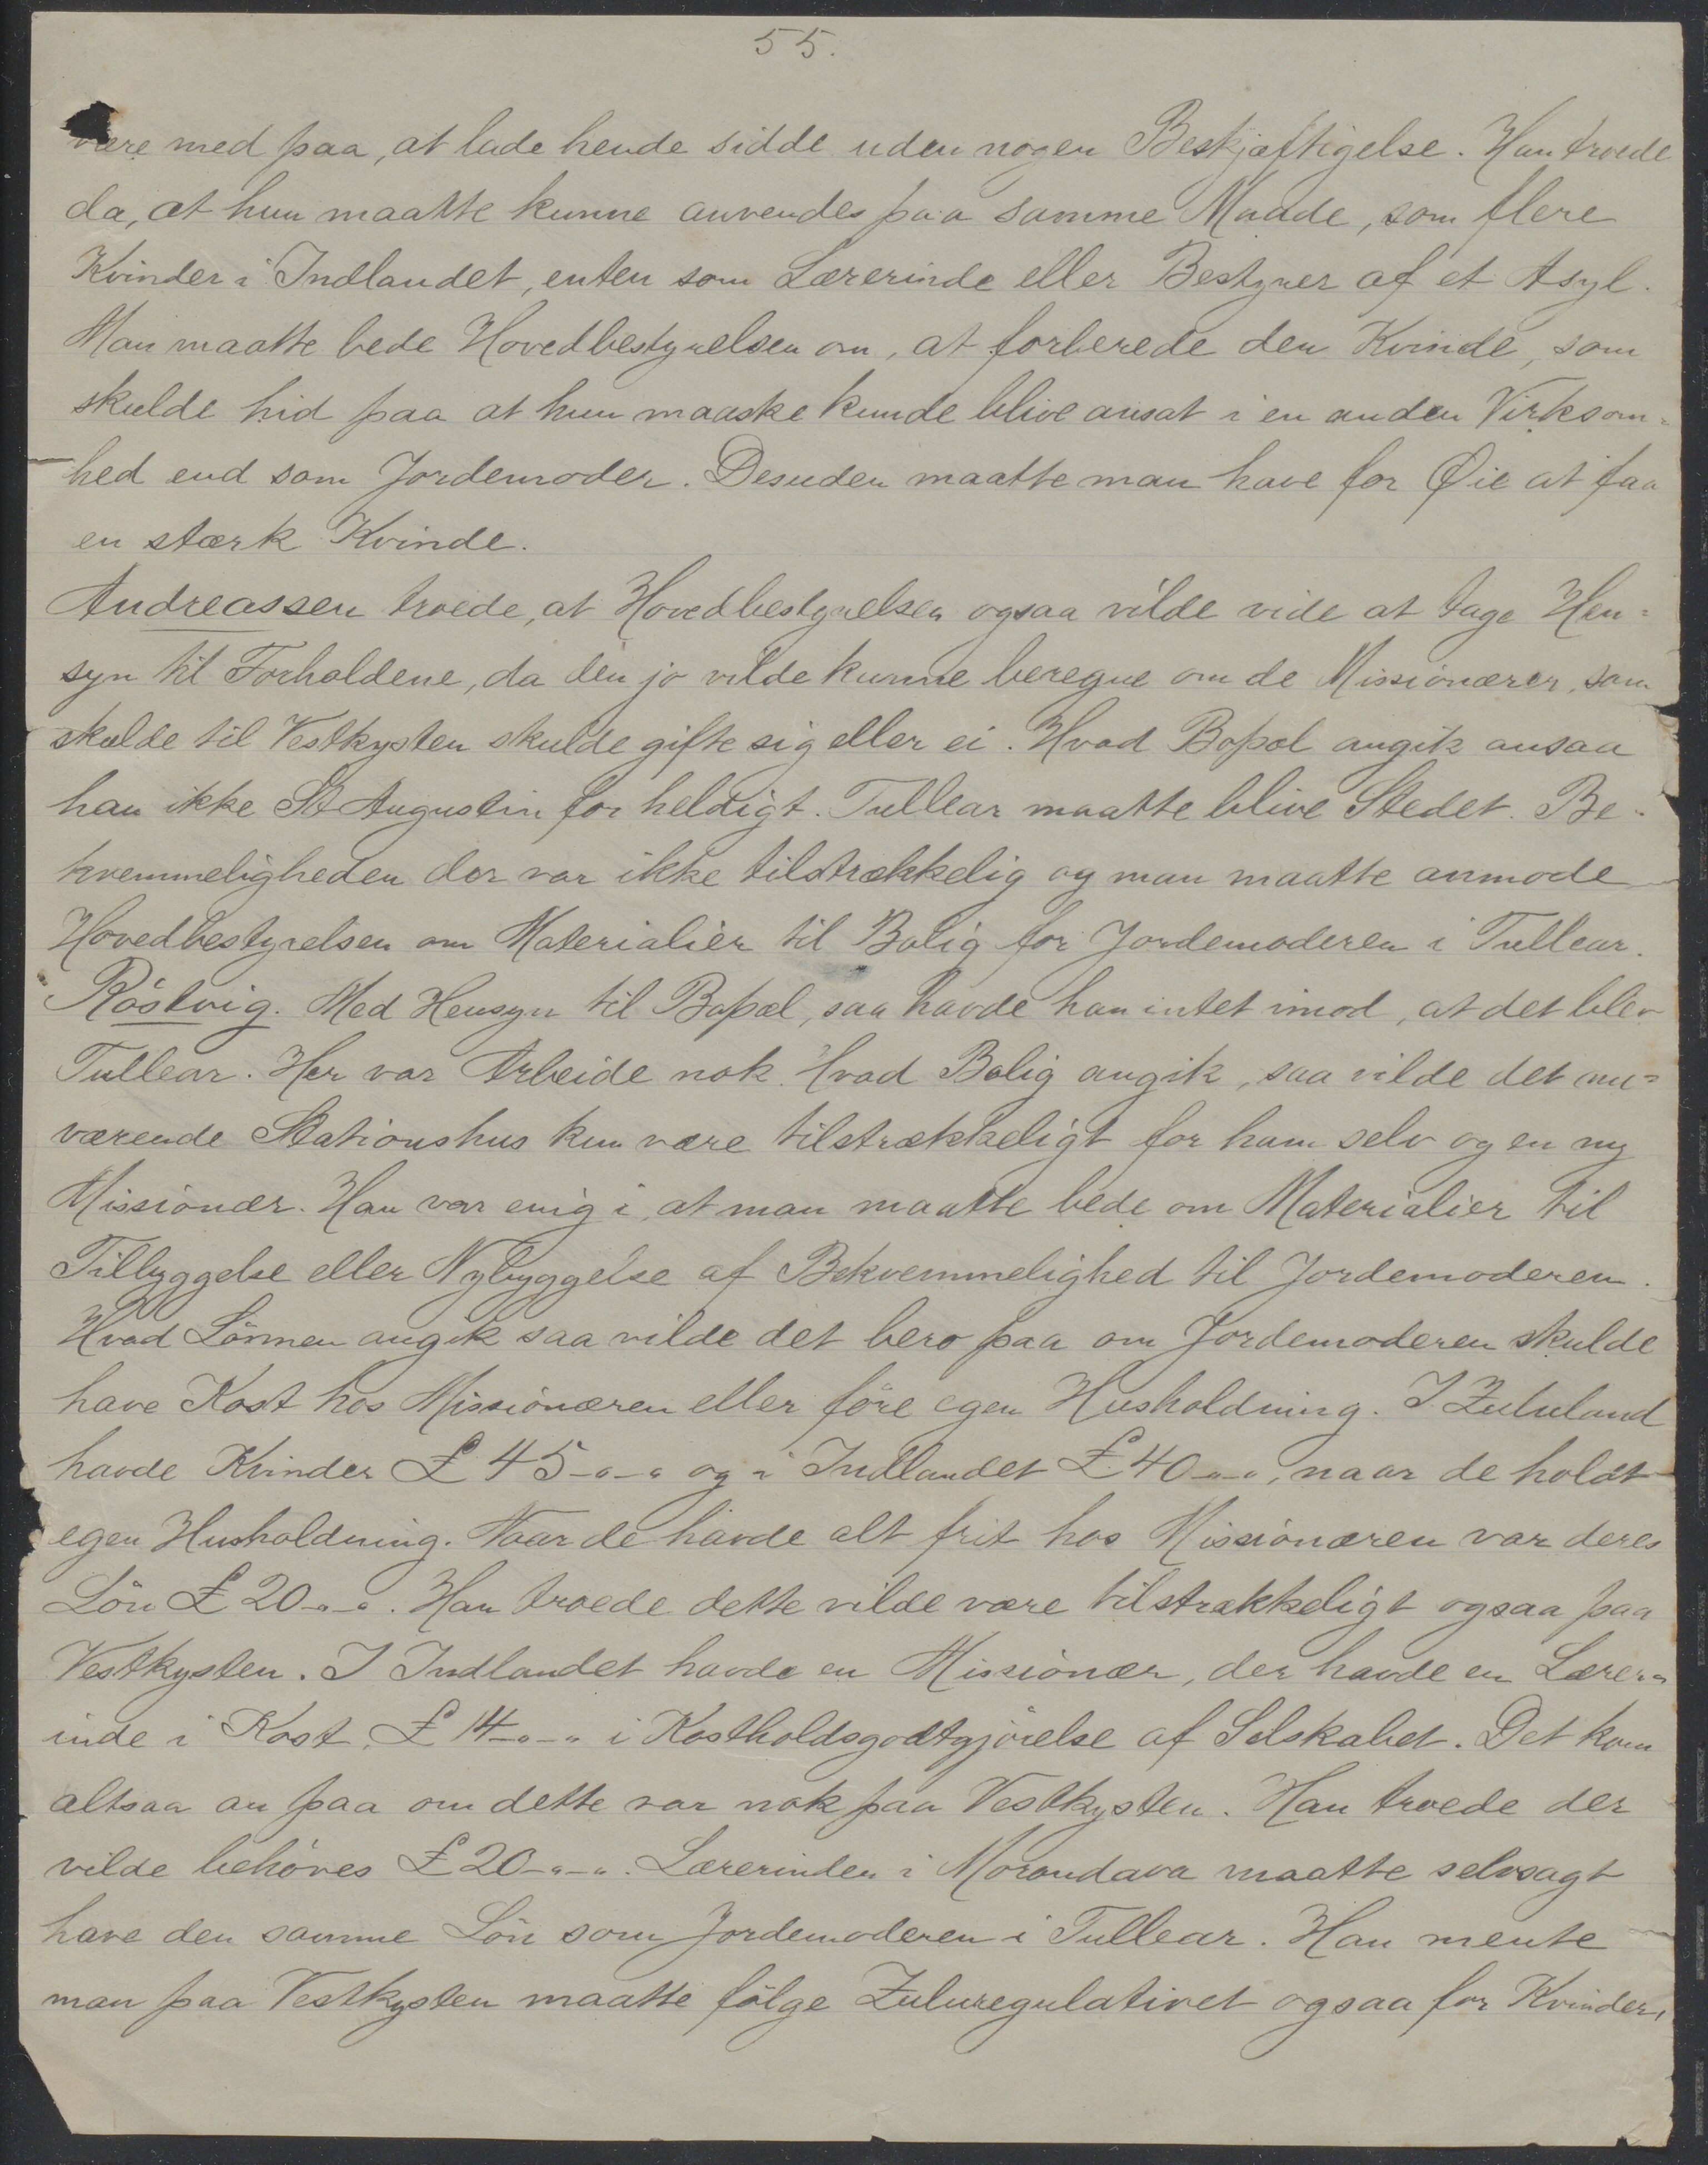 55.
være med paa, at lade hende sidde uden nogen Beskjæftigelse. Han troede
da, at hun maatte kunne anvendes paa samme Maade, som flere
Kvinder i Indlandet, enten som Lærerinde eller Bestyrer af et Asyl.
Man maatte bede Hovedbestyrelsen om, at forberede den Kvinde, som
skulde hid paa at hun maaske kunde blive ansat i en anden Virksom=
hed end som Jordemoder. Desuden maatte man have for Øie at faa
en stærk Kvinde.
Andreassen troede, at Hovedbestyrelsen ogsaa vilde vide at tage Hen=
syn til Forholdene, da den jo vilde kunne beregne om de Missionærer, som
skulde til Vestkysten skulde gifte sig eller ei. Hvad Bopæl angik ansaa
han ikke St Augustin for heldigt. Tullear maatte blive Stedet. Be-
kvemmeligheden der var ikke tilstrækkelig og man maatte anmode
Hovedbestyrelsen om Materialier til Bolig for Jordemoderen i Tullear.
Röstvig. Med Hensyn til Bopæl, saa havde han intet imod, at det blev
Tullear. Her var Arbeide nok. Hvad Bolig angik, saa vilde det nu=
værende Stationshus kun være tilstrækkeligt for ham selv og en ny
Missionær. Han var enig i, at man maatte bede om Materialier til
Tilbyggelse eller Nybyggelse af Bekvemmelighed til Jordemoderen.
Hvad Lönnen angik saa vilde det bero paa om Jordemoderen skulde
have Kost hos Missionæren eller före egen Husholdning. I Zululand
havde Kvinder £ 45-"-" og i Indlandet £ 40-"-", naar de holdt
egen Husholdning. Naar de havde alt frit hos Missionæren var deres
Lön £ 20-"-". Han troede dette vilde være tilstrækkeligt ogsaa paa
Vestkysten. I Indlandet havde en Missionær, der havde en Lærer=
inde i Kost, £ 14-"-" i Kostholdsgodtgjörelse af Selskabet. Det kom
altsaa an paa om dette var nok paa Vestkysten. Han troede der
vilde behöves £ 20-"-". Lærerinden i Morondava maatte selvsagt
have den samme Lön som Jordemoderen i Tullear. Han mente
man paa Vestkysten maatte fölge Zuluregulativet ogsaa for Kvinder,